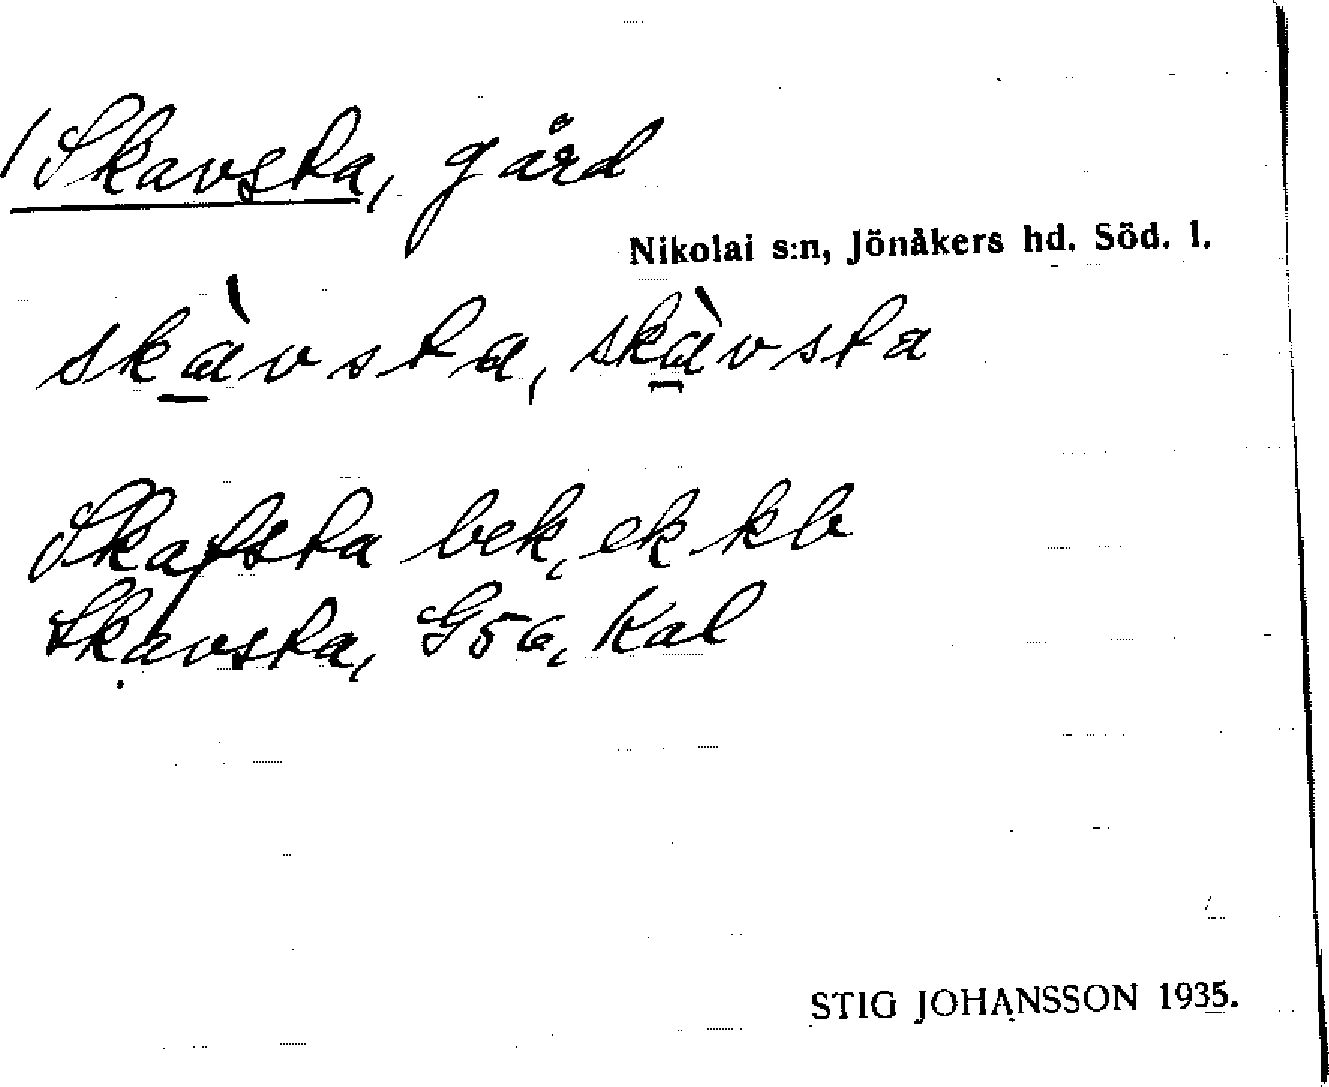 /Skavsta, gård
Nikolai s:n, Jönåkers hd. Söd. l.
skàvsta, skàvsta
Skafsta bek, ek kb
Skavsta, G56, Kal
STIG JOHANSSON 1935.